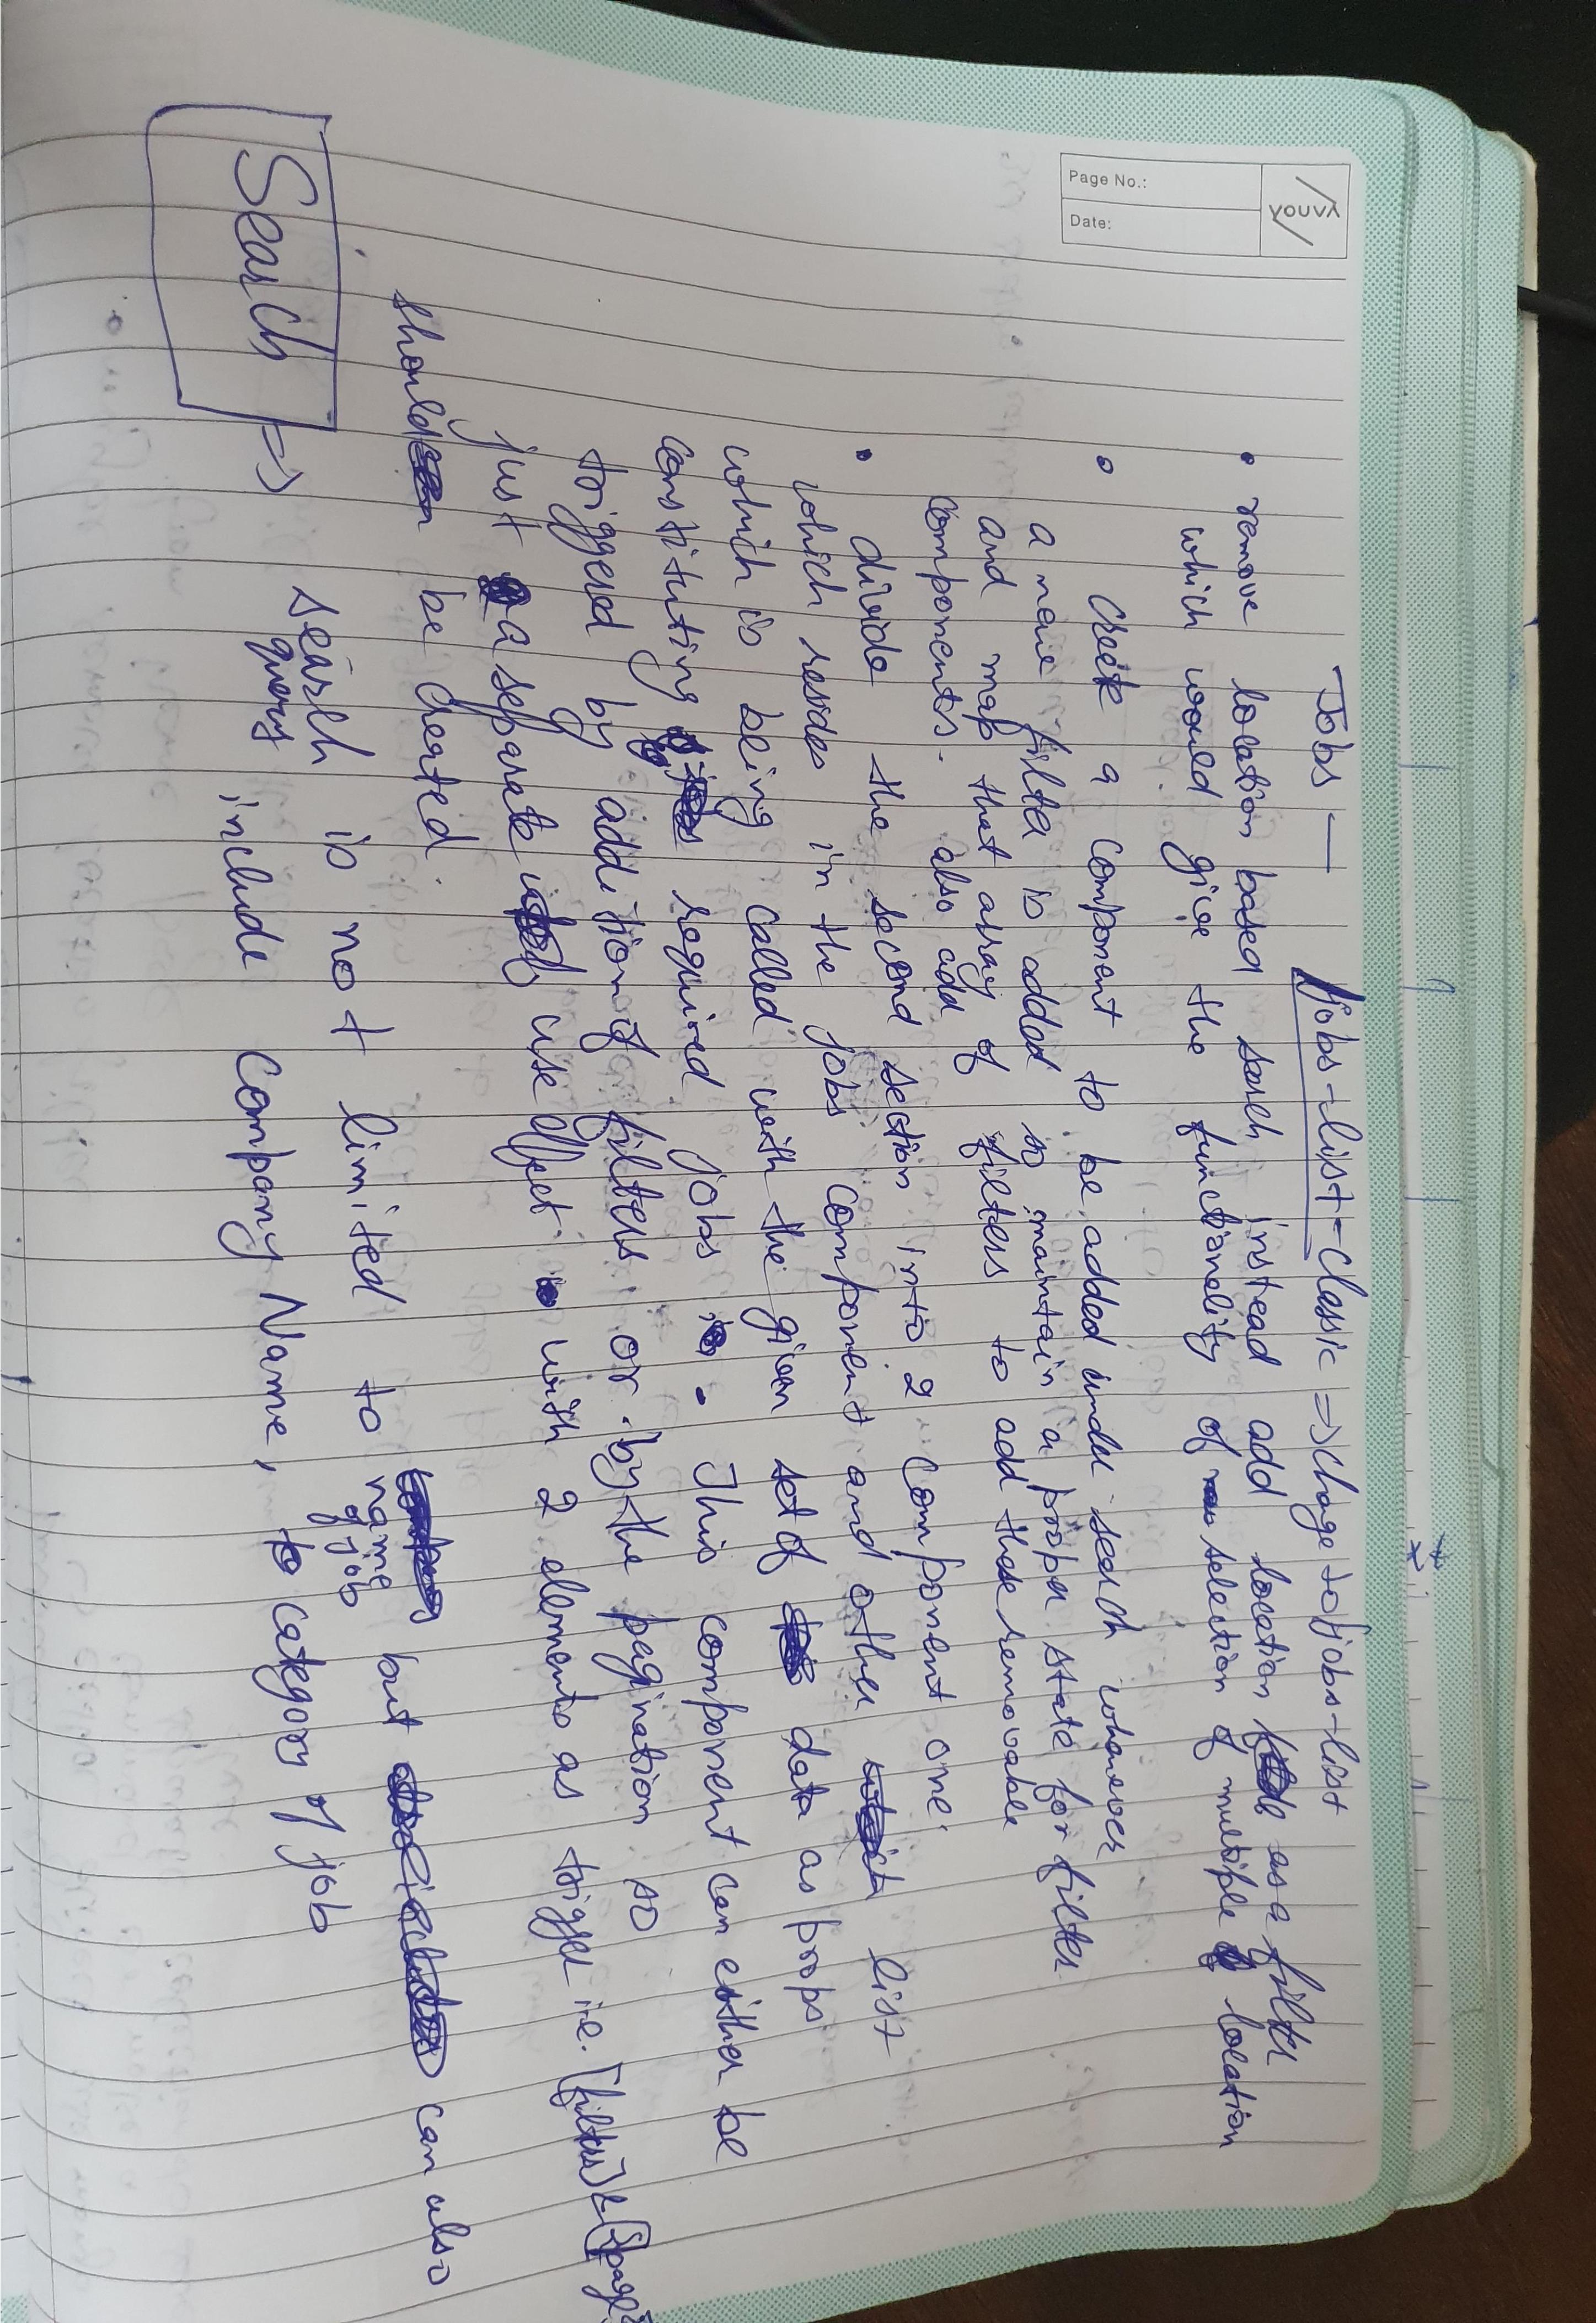 youva
Page No.:
Date:
Jobs — /jobs-list-classic => chage to /jobs-list
• remove location based search instead add location as a filter
which would give the functionality of selection of multiple location
• create a component to be added under search whenever
a new filter is added so maintain a proper state for filter
and map that array of filters to add these removable
components. also add
• divide the second section into 2 component one
which resides in the jobs component and other list
which is being called with the given set of data as props
constituting required jobs . This component can either be
triggered by addition of filters or by the pagination so
just a separate use effect with 2 elements as trigger i.e. [filters] & [page]
should be created.
Search => search query is not limited to name of job but can also
include Company Name, category of job